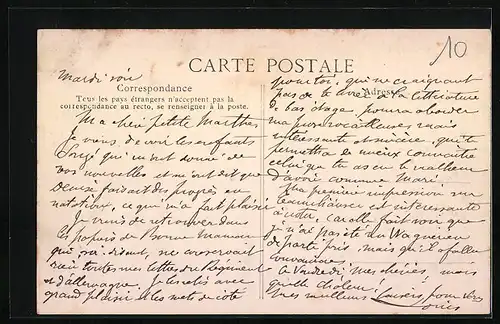 10
CARTE POSTALE
Mardi soir
Correspondance
Tous les pays étrangers n'acceptent pas la
correspondance au recto, se renseigner à la poste.
Adresse
Ma chère petite Marthe,
Je viens de voir les enfants
qui m'ont donné de
vos nouvelles et m'ont dit que
Denise faisait des progrès en
natation, ce qui m'a fait plaisir
Je viens de retrouver dans
les papiers de Bonne Maman
qui, soi-disant, ne conservait
rien toutes mes lettres du Régiment
et d'allemagne. Je les relis avec
grand plaisir et les mets de côté
pour toi, qui ne craignant
pas de te livrer à la littérature
de bas étage, pourra aborder
ma prose rocailleuse mais
intéressante qui te
permettra de mieux connaître
celui que tu as eu le malheur
d'avoir comme Mari.
Ma première impression sur
est intéressante
à noter, car elle fait voir que
je n'ai pas été au Wagnerien
de parti pris, mais qu'il a fallu
convaincre
à Vendredi mes chéries, mais
quelle chaleur!
Mes meilleurs baisers pour vous
Louis